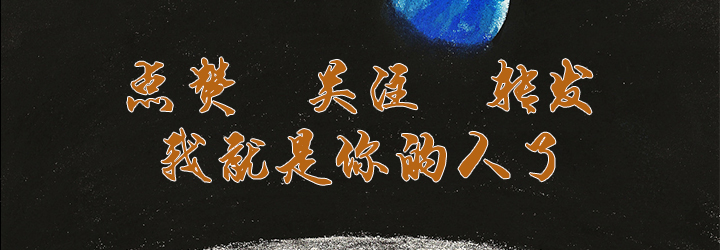 点赞 关注 转发
我就是你的人了